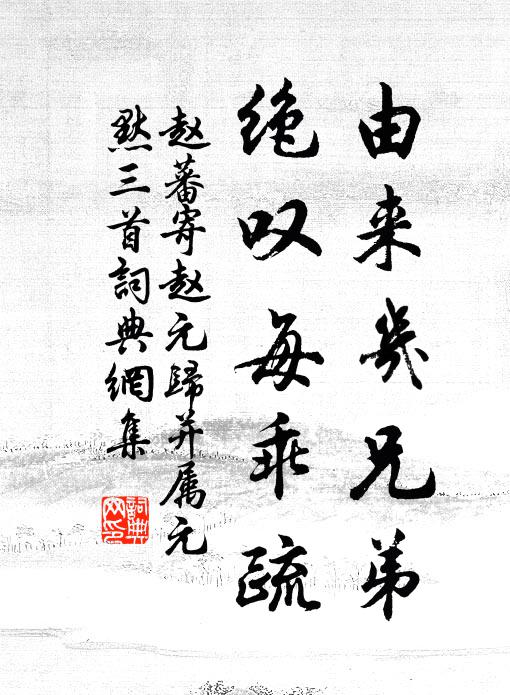 由来幾兄弟
绝叹每乖疏
赵蕃寄赵元歸并属元
默三首詞典網集
詞典网印